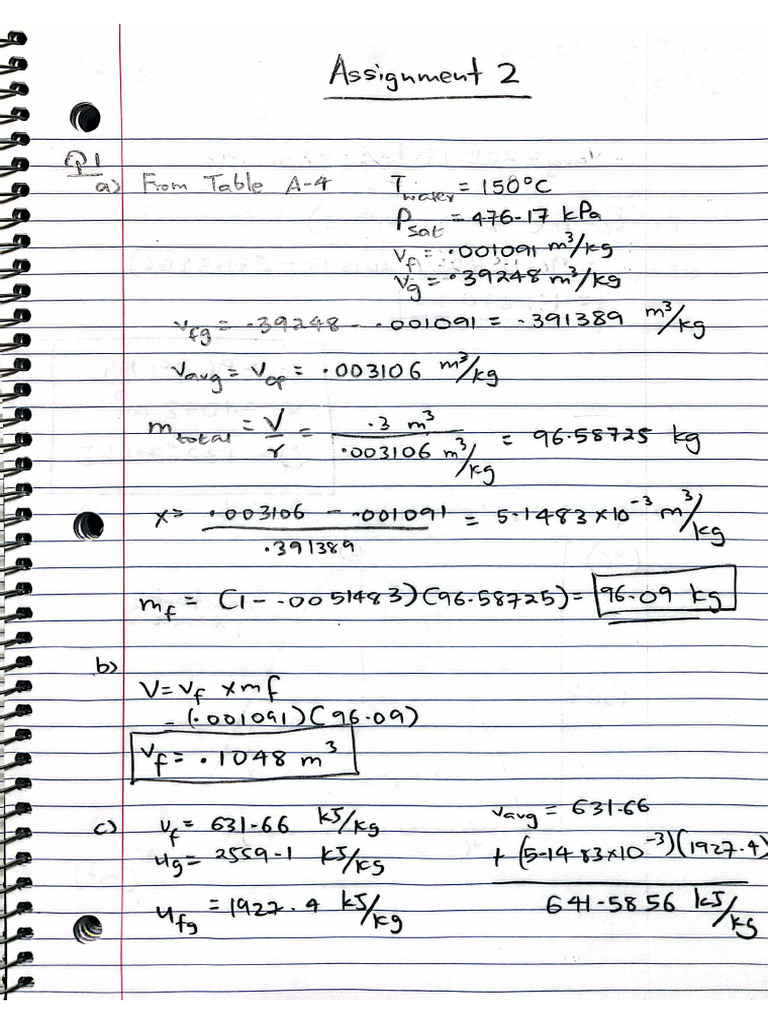 Assignment 2
Q1
a) From Table A-4 T water = 150°C
P sat = 476.17 kPa
v_f = .001091 m³/kg
v_g = .39248 m³/kg
v_fg = .39248 - .001091 = .391389 m³/kg
v_avg = v_cp = .003106 m³/kg
m total = V/r = .3 m³ / .003106 m³/kg = 96.58725 kg
x = .003106 - .001091 / .391389 = 5.1483 × 10⁻³ m³/kg
m_f = (1 - .0051483)(96.58725) = 96.09 kg
b)
V = v_f × mf
= (.001091)(96.09)
v_f = .1048 m³
c) u_f = 631.66 kJ/kg v_avg = 631.66
u_g = 2559.1 kJ/kg + (5.1483×10⁻³)(1927.4)
u_fg = 1927.4 kJ/kg 641.5856 kJ/kg